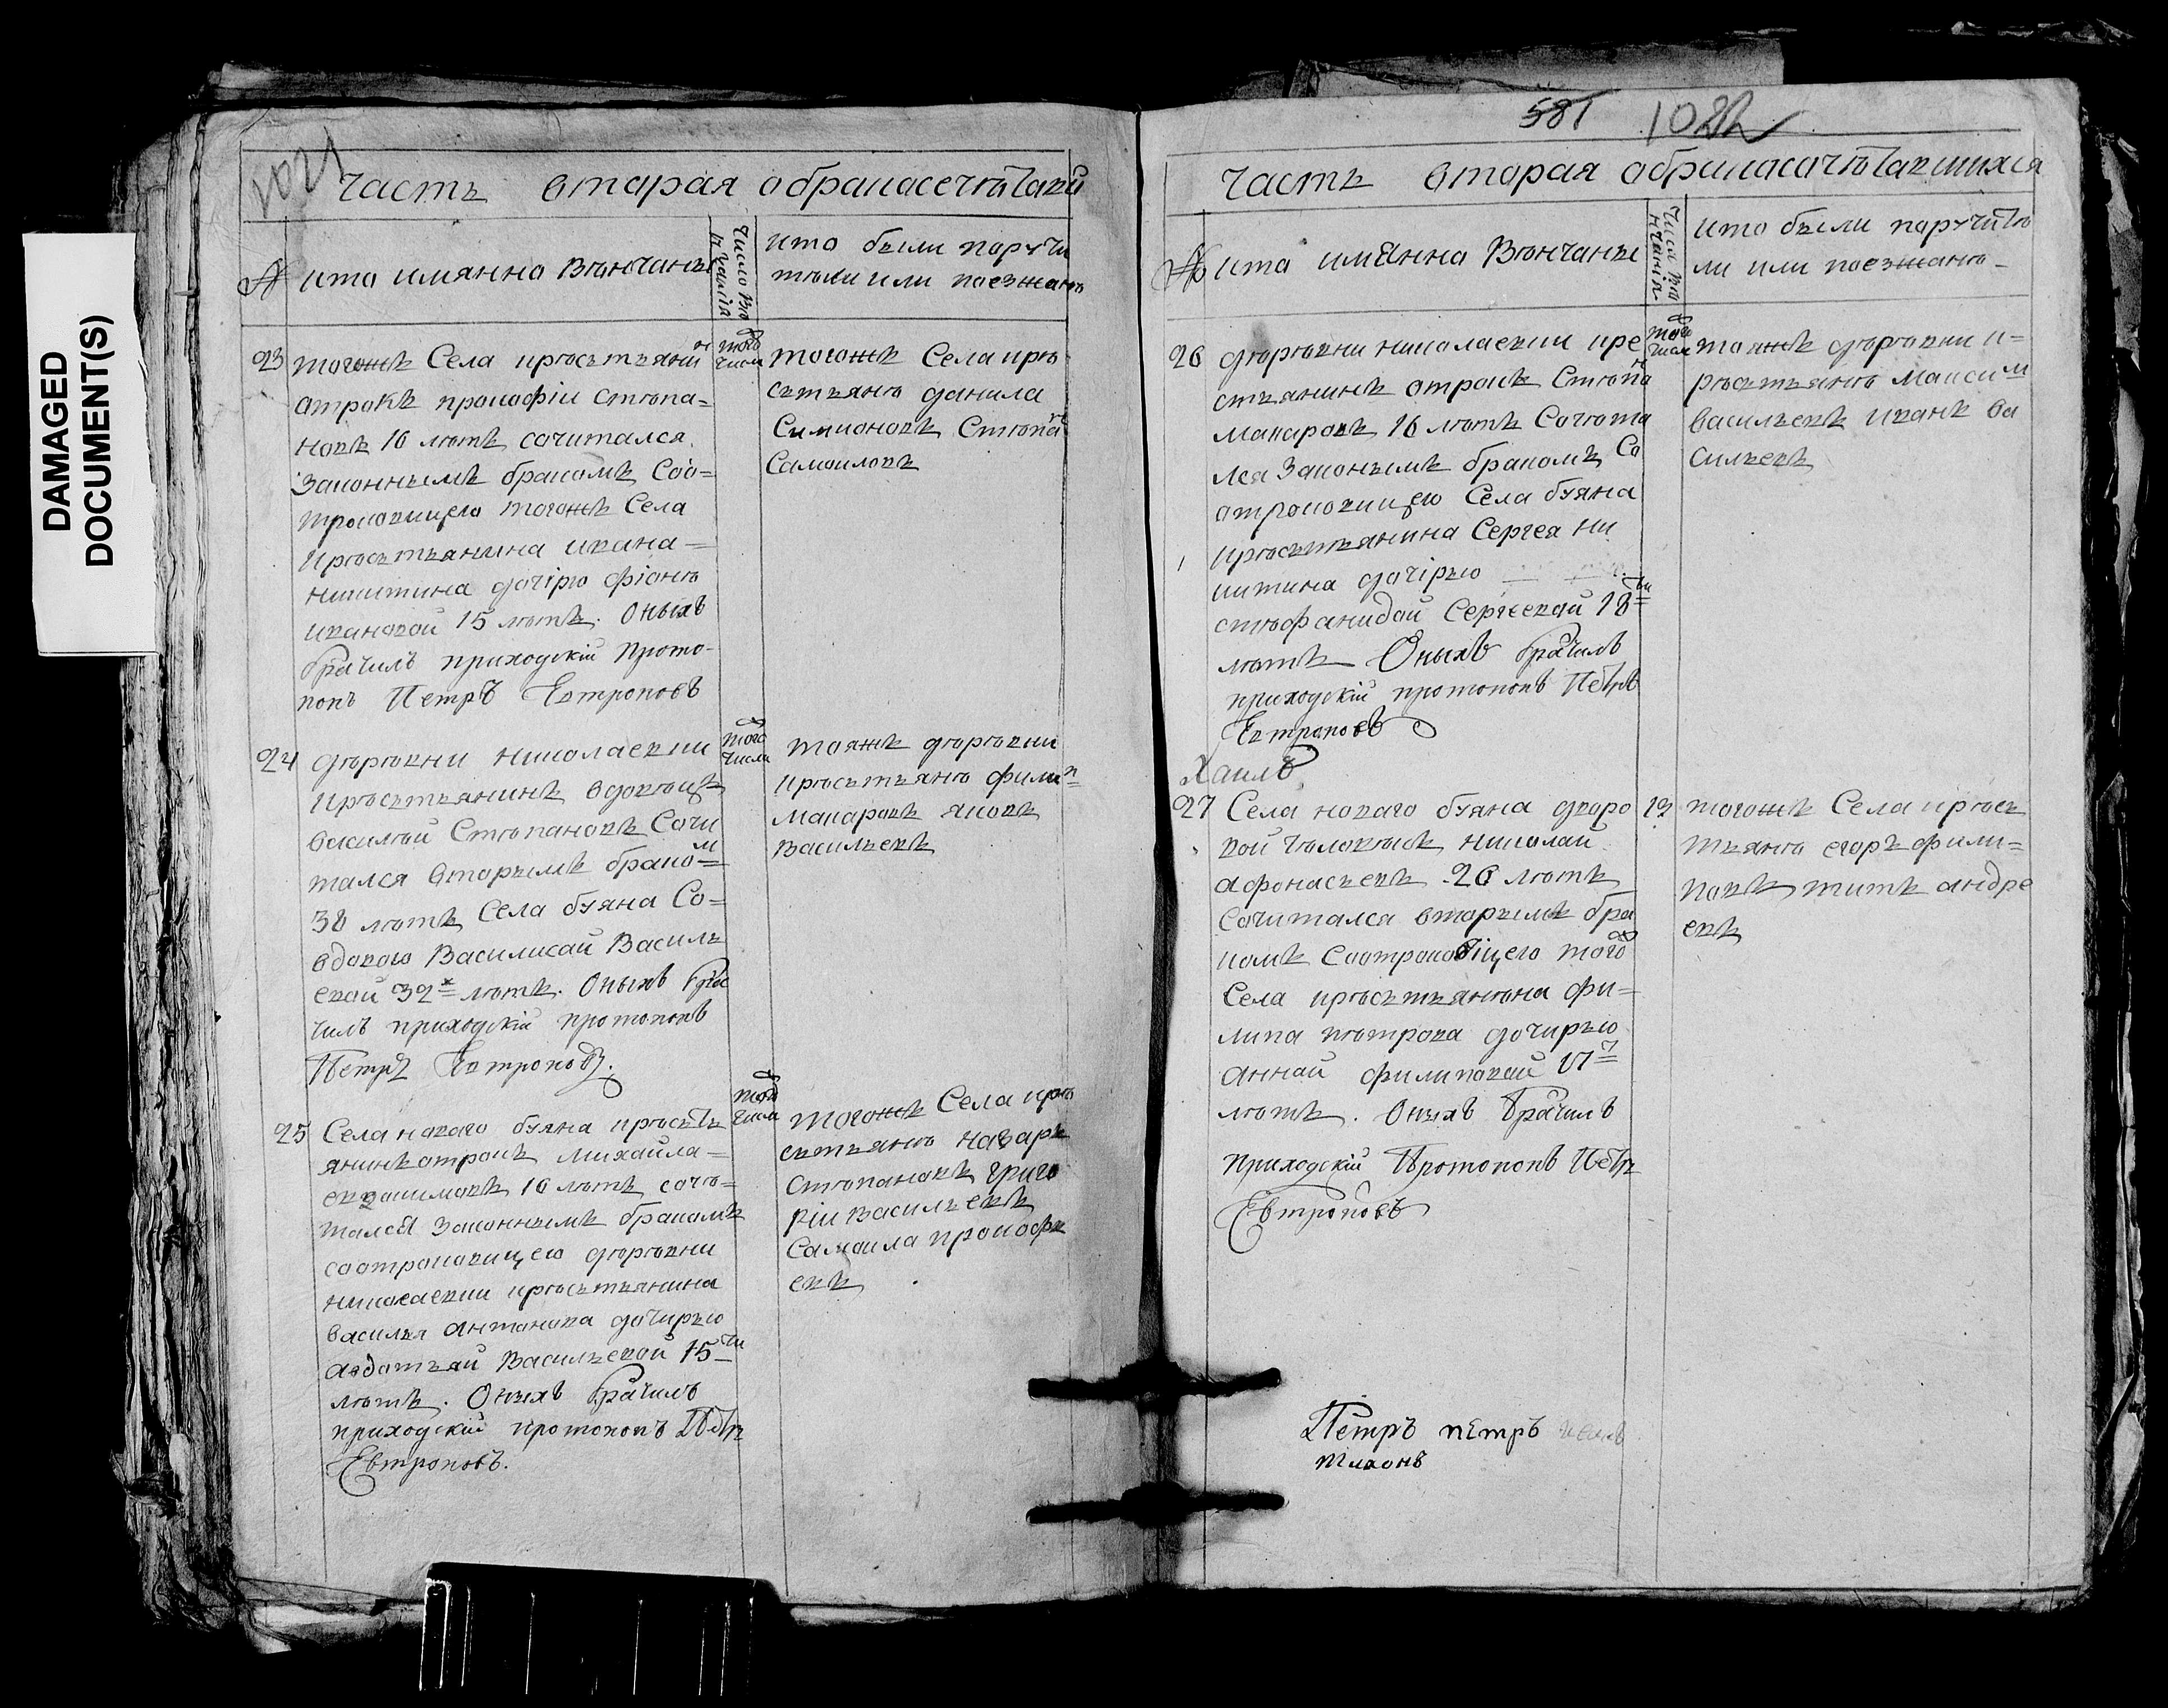 DAMAGED
DOCUMENT(S)
1021
часть вторая обракосечѣтавши
№ кто имянно вѣнчаны
число вѣ
нчанія
кто были поручи
тѣли или поезжанѣ
23 тогожъ Села крѣсьтьянин
отрокъ прокофiи Стѣпа=
новъ 16 лѣтъ сочитался
Законнымъ бракомъ Соо=
троковицею тогожъ Села
Крѣсьтьянина ивана=
никитина дочiрю фiонѣ
ивановой 15 лѣтъ. Оныхъ
брачилъ приходскiй прото-
попъ Петръ Евтроповъ
того
числа
тогожъ Села крѣ
сьтьянѣ данила
Симионовъ Стѣпан
Самоиловъ
24 дѣрѣвни николаевки
Крѣсьтьянинъ вдовѣцъ
василѣй Стѣпановъ Сочи
тался вторымъ браком
38 лѣтъ Села буяна Со=
вдовою Василисой Василь
евой 32х лѣтъ. Оныхъ бра
чилъ приходскiй протопопъ
Петръ Евтроповъ.
того
числа
тояжъ дѣрѣвни
крѣсьтьянѣ филип
макаровъ яковъ
васильевъ
25 Села новаго буяна крѣсьть
янинъ отрокъ михайла=
16 лѣтъ сочѣ=
тался законнымъ бракомъ
соотроковицею дѣрѣвни
николаевки крѣсьтьянина
василья антонова дочирью
авдотьяй Васильевой 15ти
лѣтъ. Оныхъ брачилъ
приходскiй протопопъ Петръ
Евтроповъ.
того
числа
тогожъ Села крѣ
сьтьянѣ назаръ
Стѣпановъ григо
рiй васильевъ
Самоила прокофь
евъ
581 1022
часть вторая обракосочѣтавшихся
№ кто имянно вѣнчаны
числа вѣ
нчанiя
кто были поручитѣ
ли или поезжанѣ
26 дѣрѣвни николаевки кре
стьянинъ отрокъ Стѣпан
макаровъ 16 лѣтъ Сочѣта
лся Законнымъ бракомъ Со
отроковицею Села буяна
крѣсьтьянина Сергея ни
китина дочiрью
стѣфанидой Сергѣевой 18ти
лѣтъ Оныхъ брачилъ
приходскiй протопопъ Петръ
Евтроповъ
того
числа
тояжъ дѣрѣвни к=
рѣсьтьянѣ максим
васильевъ иванъ ва
сильевъ
27 Села новаго буяна дворо
вой чѣловѣкъ николай
афонасьевъ 26 лѣтъ
Сочитался вторымъ бра
комъ Соотроковiцею того
Села крѣсьтьянѣна фи=
липа пѣтрова дочирью
анной филиповой 17
лѣтъ. Оныхъ брачилъ
приходскiй протопопъ Петръ
Евтроповъ
12
тогожъ Села крѣсь
тьянѣ егоръ фили=
повъ титъ андре
евъ
Петръ петръ
тихонъ